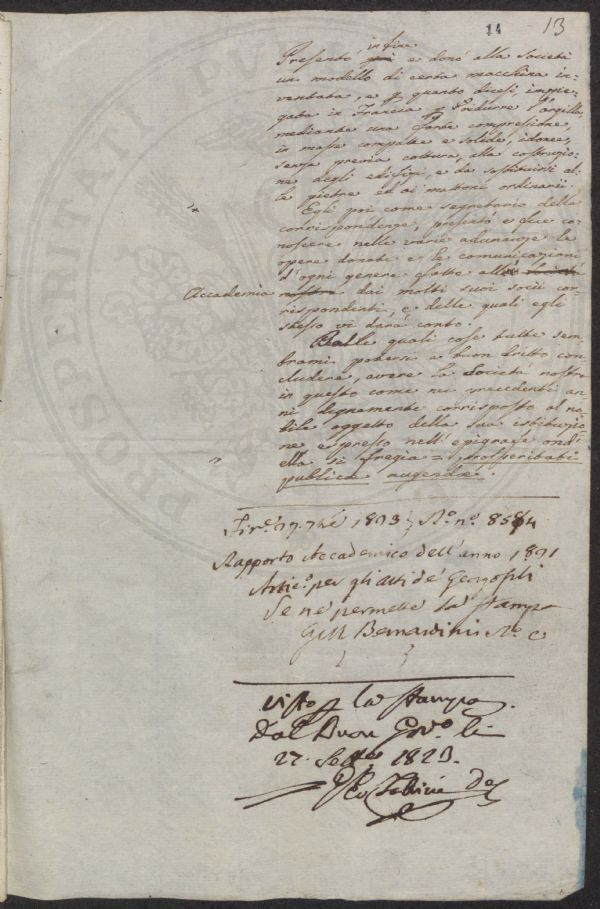 14 13
infine
Presentò più e donò alla Società
un modello di certa macchina in-
ventata, e p quanto dicesi, impie-
gata in Francia p ridurre l'argilla,
mediante una forte compressione,
in masse compatte e solide, idonee,
senza previa cottura, alla costruzio-
ne degli edifizi, e da sostituirsi al-
le pietre ed ai mattoni ordinarii.
Egli poi come segretario delle
corrispondenze, presentò e fece co-
noscere nelle varie adunanze le
opere donate e le comunicazioni
d'ogni genere fatte alla Società
Accademia nostra dai molti suoi socii cor-
rispondenti, e delle quali egli
stesso vi darà conto.
Dalle quali cose tutte sem-
brami potersi a buon dritto con-
cludere, avere la Società nostra
in questo come ne' precedenti an-
ni degnamente corrisposto al no-
bile oggetto della sua istituzio-
ne espresso nell'epigrafe ond'
ella si fregia = prosperitati
publicae augendae.
Fir.e 27. 7bre 1823 Ro. n.o
Rapporto Accademico dell'anno
per gli atti de' Georgofili
Se ne permette la stampa
Bernardini R. C.
Visto p la stampa
Dal Buon Gov.o li
27. Sett.e 1823.
PROSPERITATI PVBLICAE